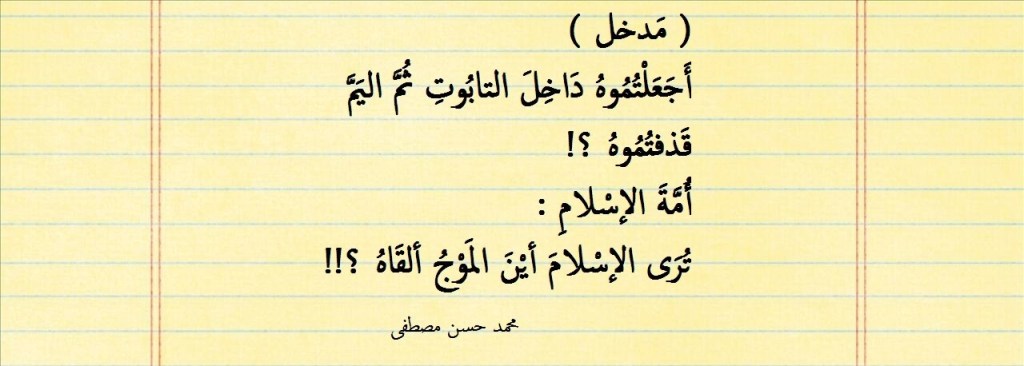 ( مَدخل )
أَجَعَلْتُمُوهُ دَاخِلَ التابُوتِ ثُمَّ اليَمَّ
قَذفتُمُوهُ ؟!
أُمَّةَ الإسْلامِ :
تُرَى الإسْلامَ أيْنَ المَوْجُ ألقَاهُ ؟!!
محمد حسن مصطفى